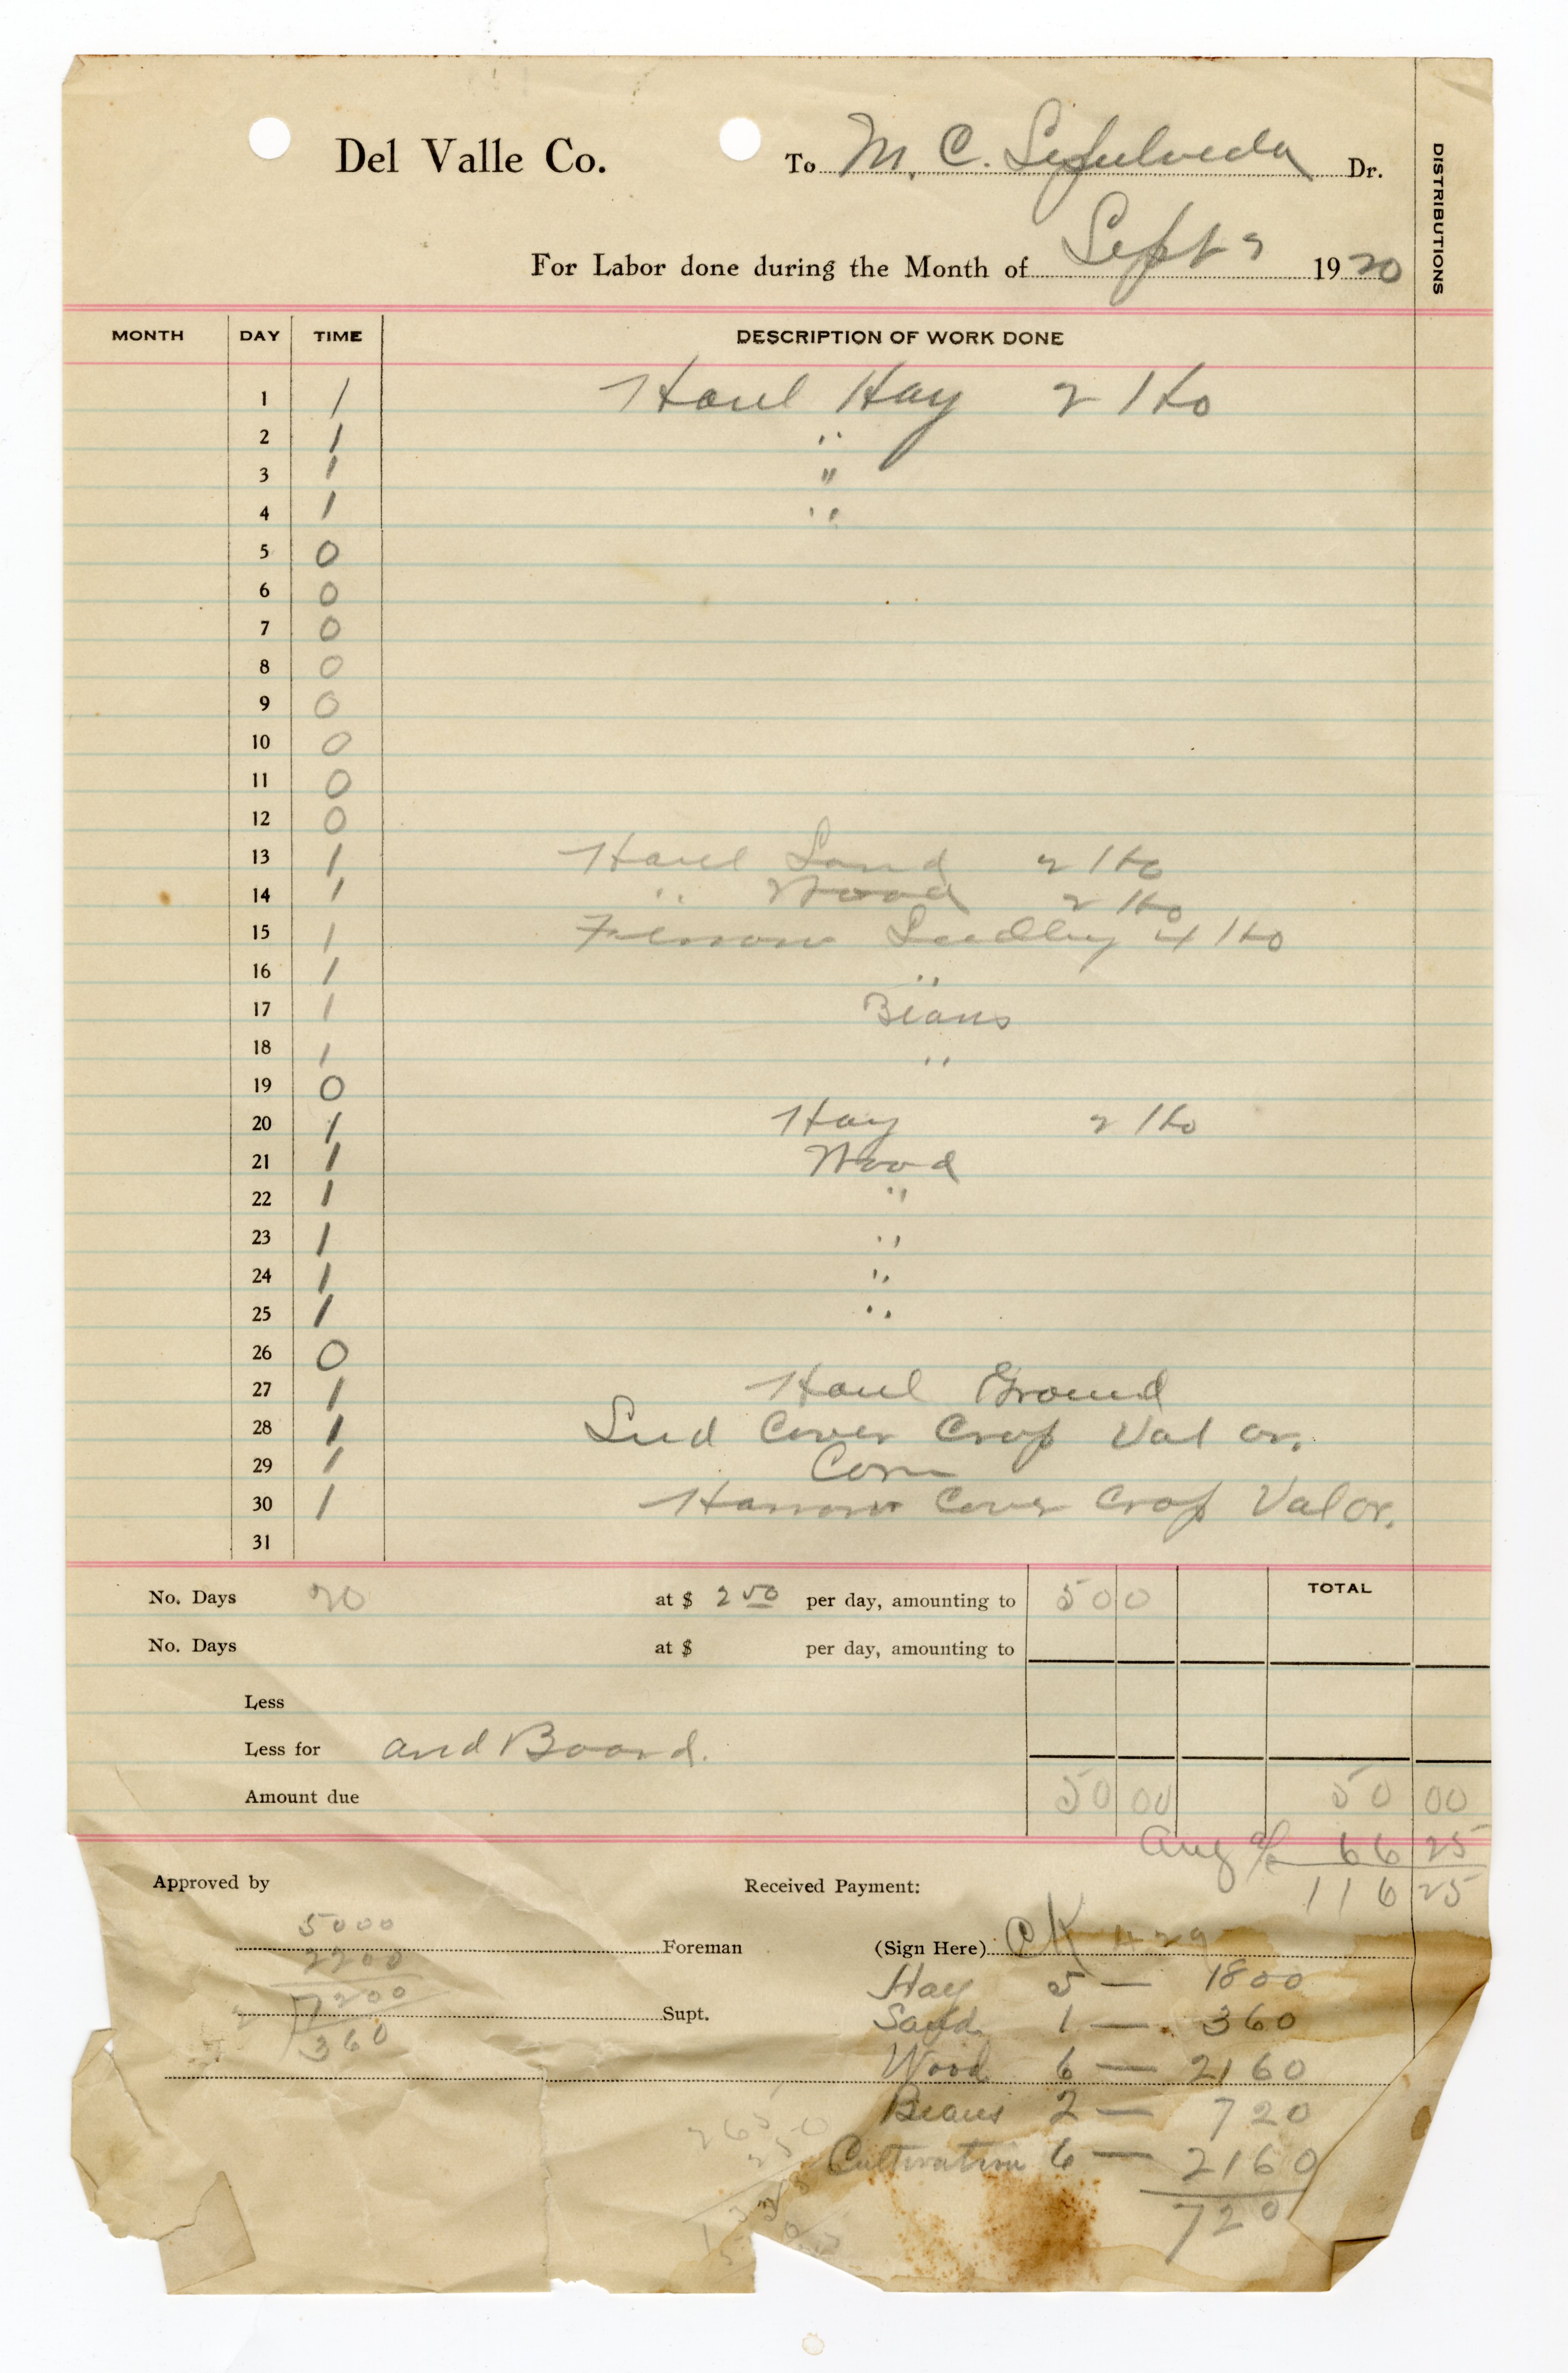 Del Valle Co. To M. C. Sepulveda Dr.
DISTRIBUTIONS
For Labor done during the Month of Sept 1920
MONTH DAY TIME DESCRIPTION OF WORK DONE
1 1 Haul Hay 2 Ho
2 1 "
3 1 "
4 1 "
5 0
6 0
7 0
8 0
9 0
10 0
11 0
12 0
13 1 Haul Sand 2 Ho
14 1 " Wood 2 Ho
15 1 4 Ho
16 1 "
17 1 Beans
18 1 "
19 0
20 1 Hay 2 Ho
21 1 Wood
22 1 "
23 1 "
24 1 "
25 1 "
26 0
27 1 Haul Ground
28 1 Cover Crop Val or.
29 1 Corn
30 1 Harrow Cover Crop Val or.
31
No. Days 20 at $ 2 50 per day, amounting to 50 0 TOTAL
No. Days at $ per day, amounting to
Less
Less for and Board.
Amount due 50 00 50 00
Aug a/c 66 25
116 25
Approved by Received Payment:
5000
Foreman (Sign Here) CK 429
2200
7200 Supt.
360
Hay 5 — 1800
Sand 1 — 360
Wood 6 — 2160
Beans 2 — 720
Cultivation 6 — 2160
720